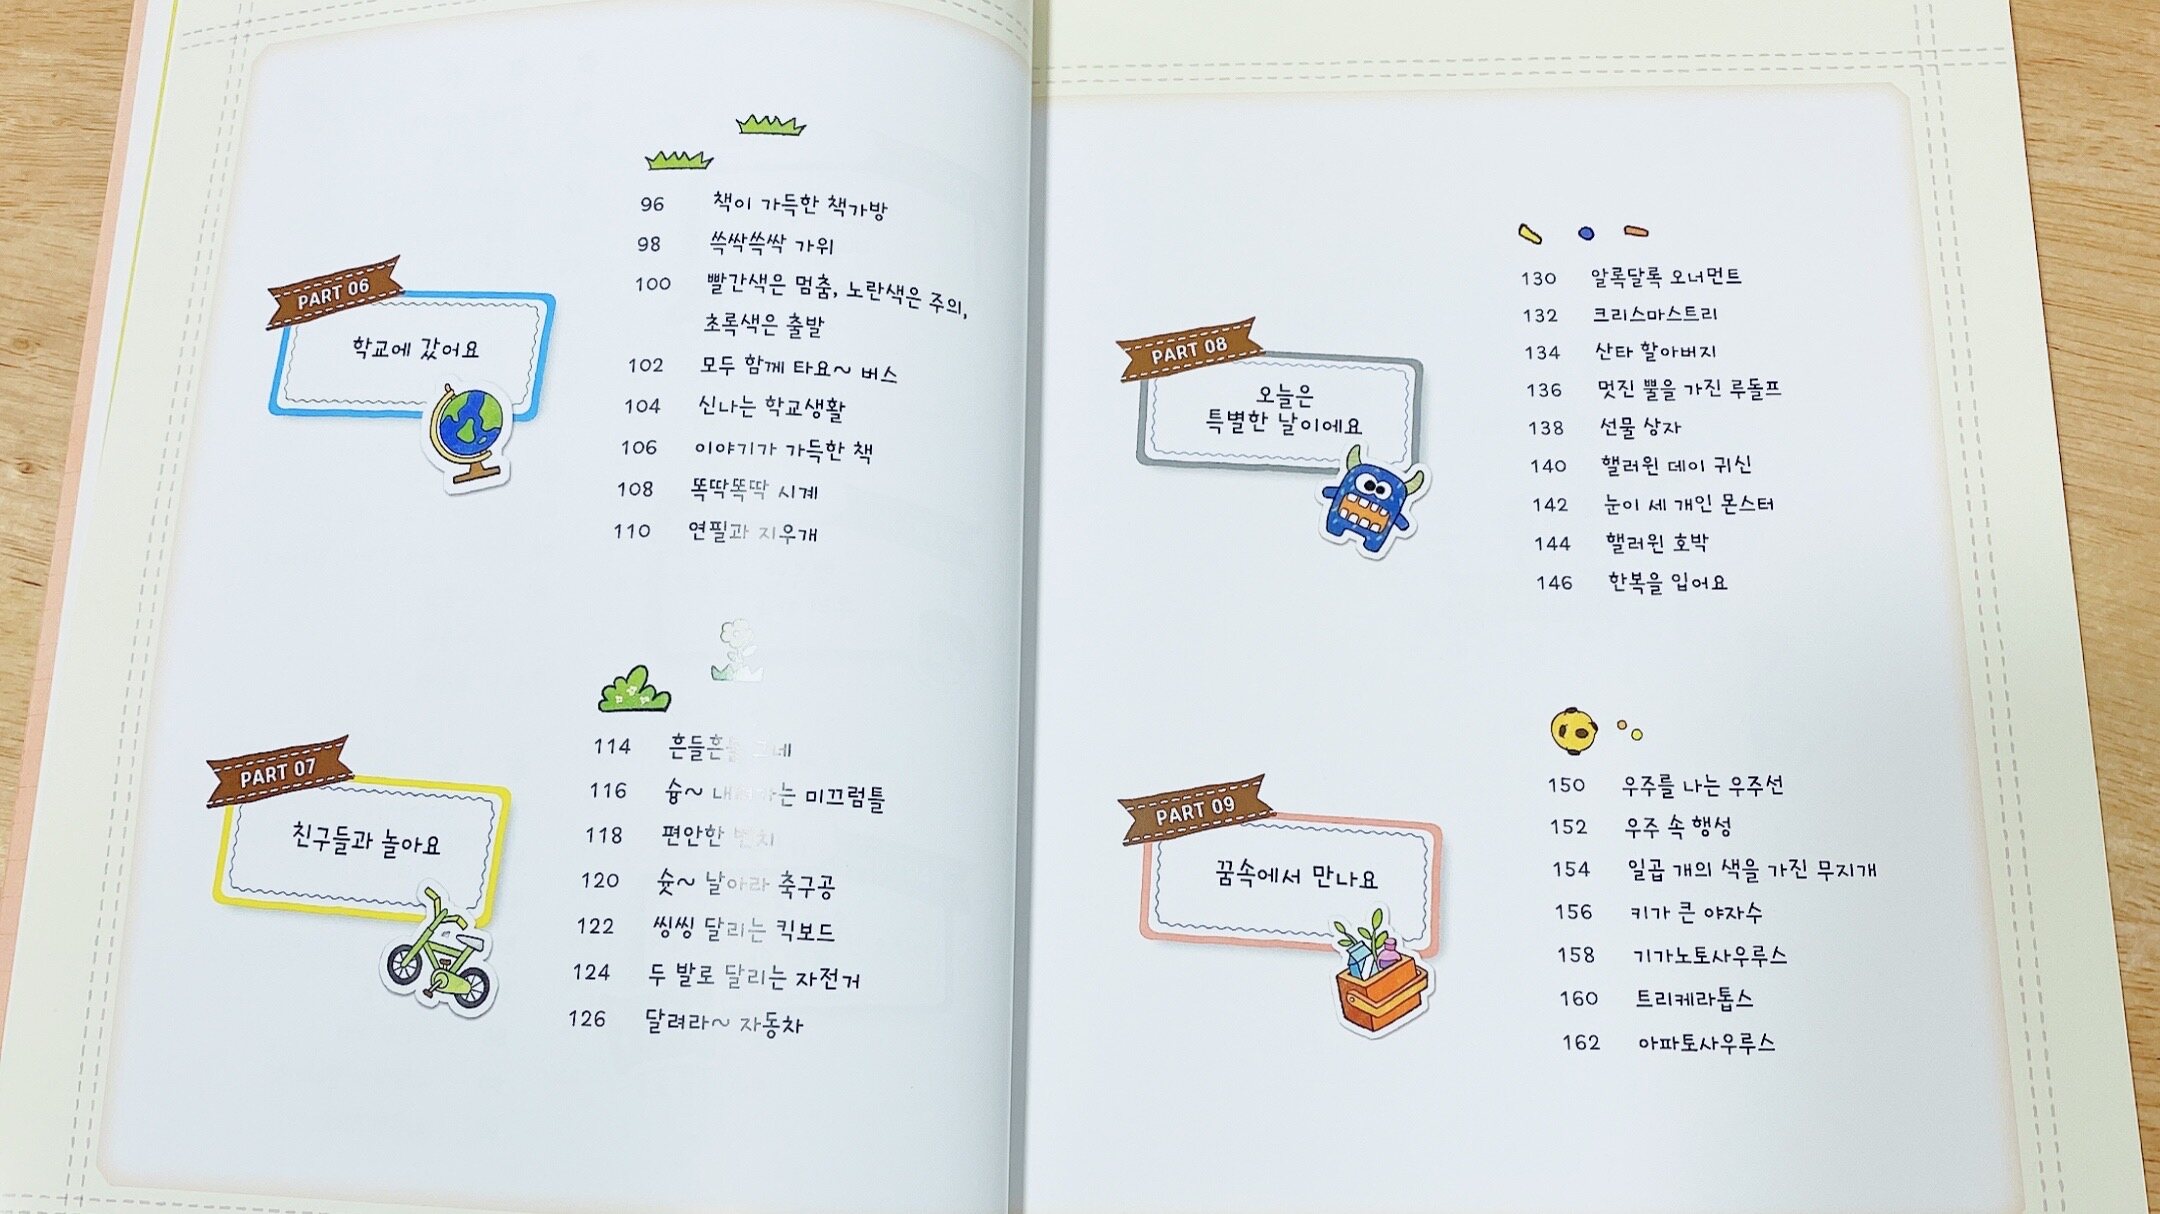 PART 06
학교에 갔어요
96 책이 가득한 책가방
98 쓱싹쓱싹 가위
100 빨간색은 멈춤, 노란색은 주의,
초록색은 출발
102 모두 함께 타요~ 버스
104 신나는 학교생활
106 이야기가 가득한 책
108 똑딱똑딱 시계
110 연필과 지우개
PART 07
친구들과 놀아요
114 흔들흔들 그네
116 슝~ 내려가는 미끄럼틀
118 편안한 벤치
120 슛~ 날아라 축구공
122 씽씽 달리는 킥보드
124 두 발로 달리는 자전거
126 달려라~ 자동차
PART 08
오늘은
특별한 날이에요
130 알록달록 오너먼트
132 크리스마스트리
134 산타 할아버지
136 멋진 뿔을 가진 루돌프
138 선물 상자
140 핼러윈 데이 귀신
142 눈이 세 개인 몬스터
144 핼러윈 호박
146 한복을 입어요
PART 09
꿈속에서 만나요
150 우주를 나는 우주선
152 우주 속 행성
154 일곱 개의 색을 가진 무지개
156 키가 큰 야자수
158 기가노토사우루스
160 트리케라톱스
162 아파토사우루스